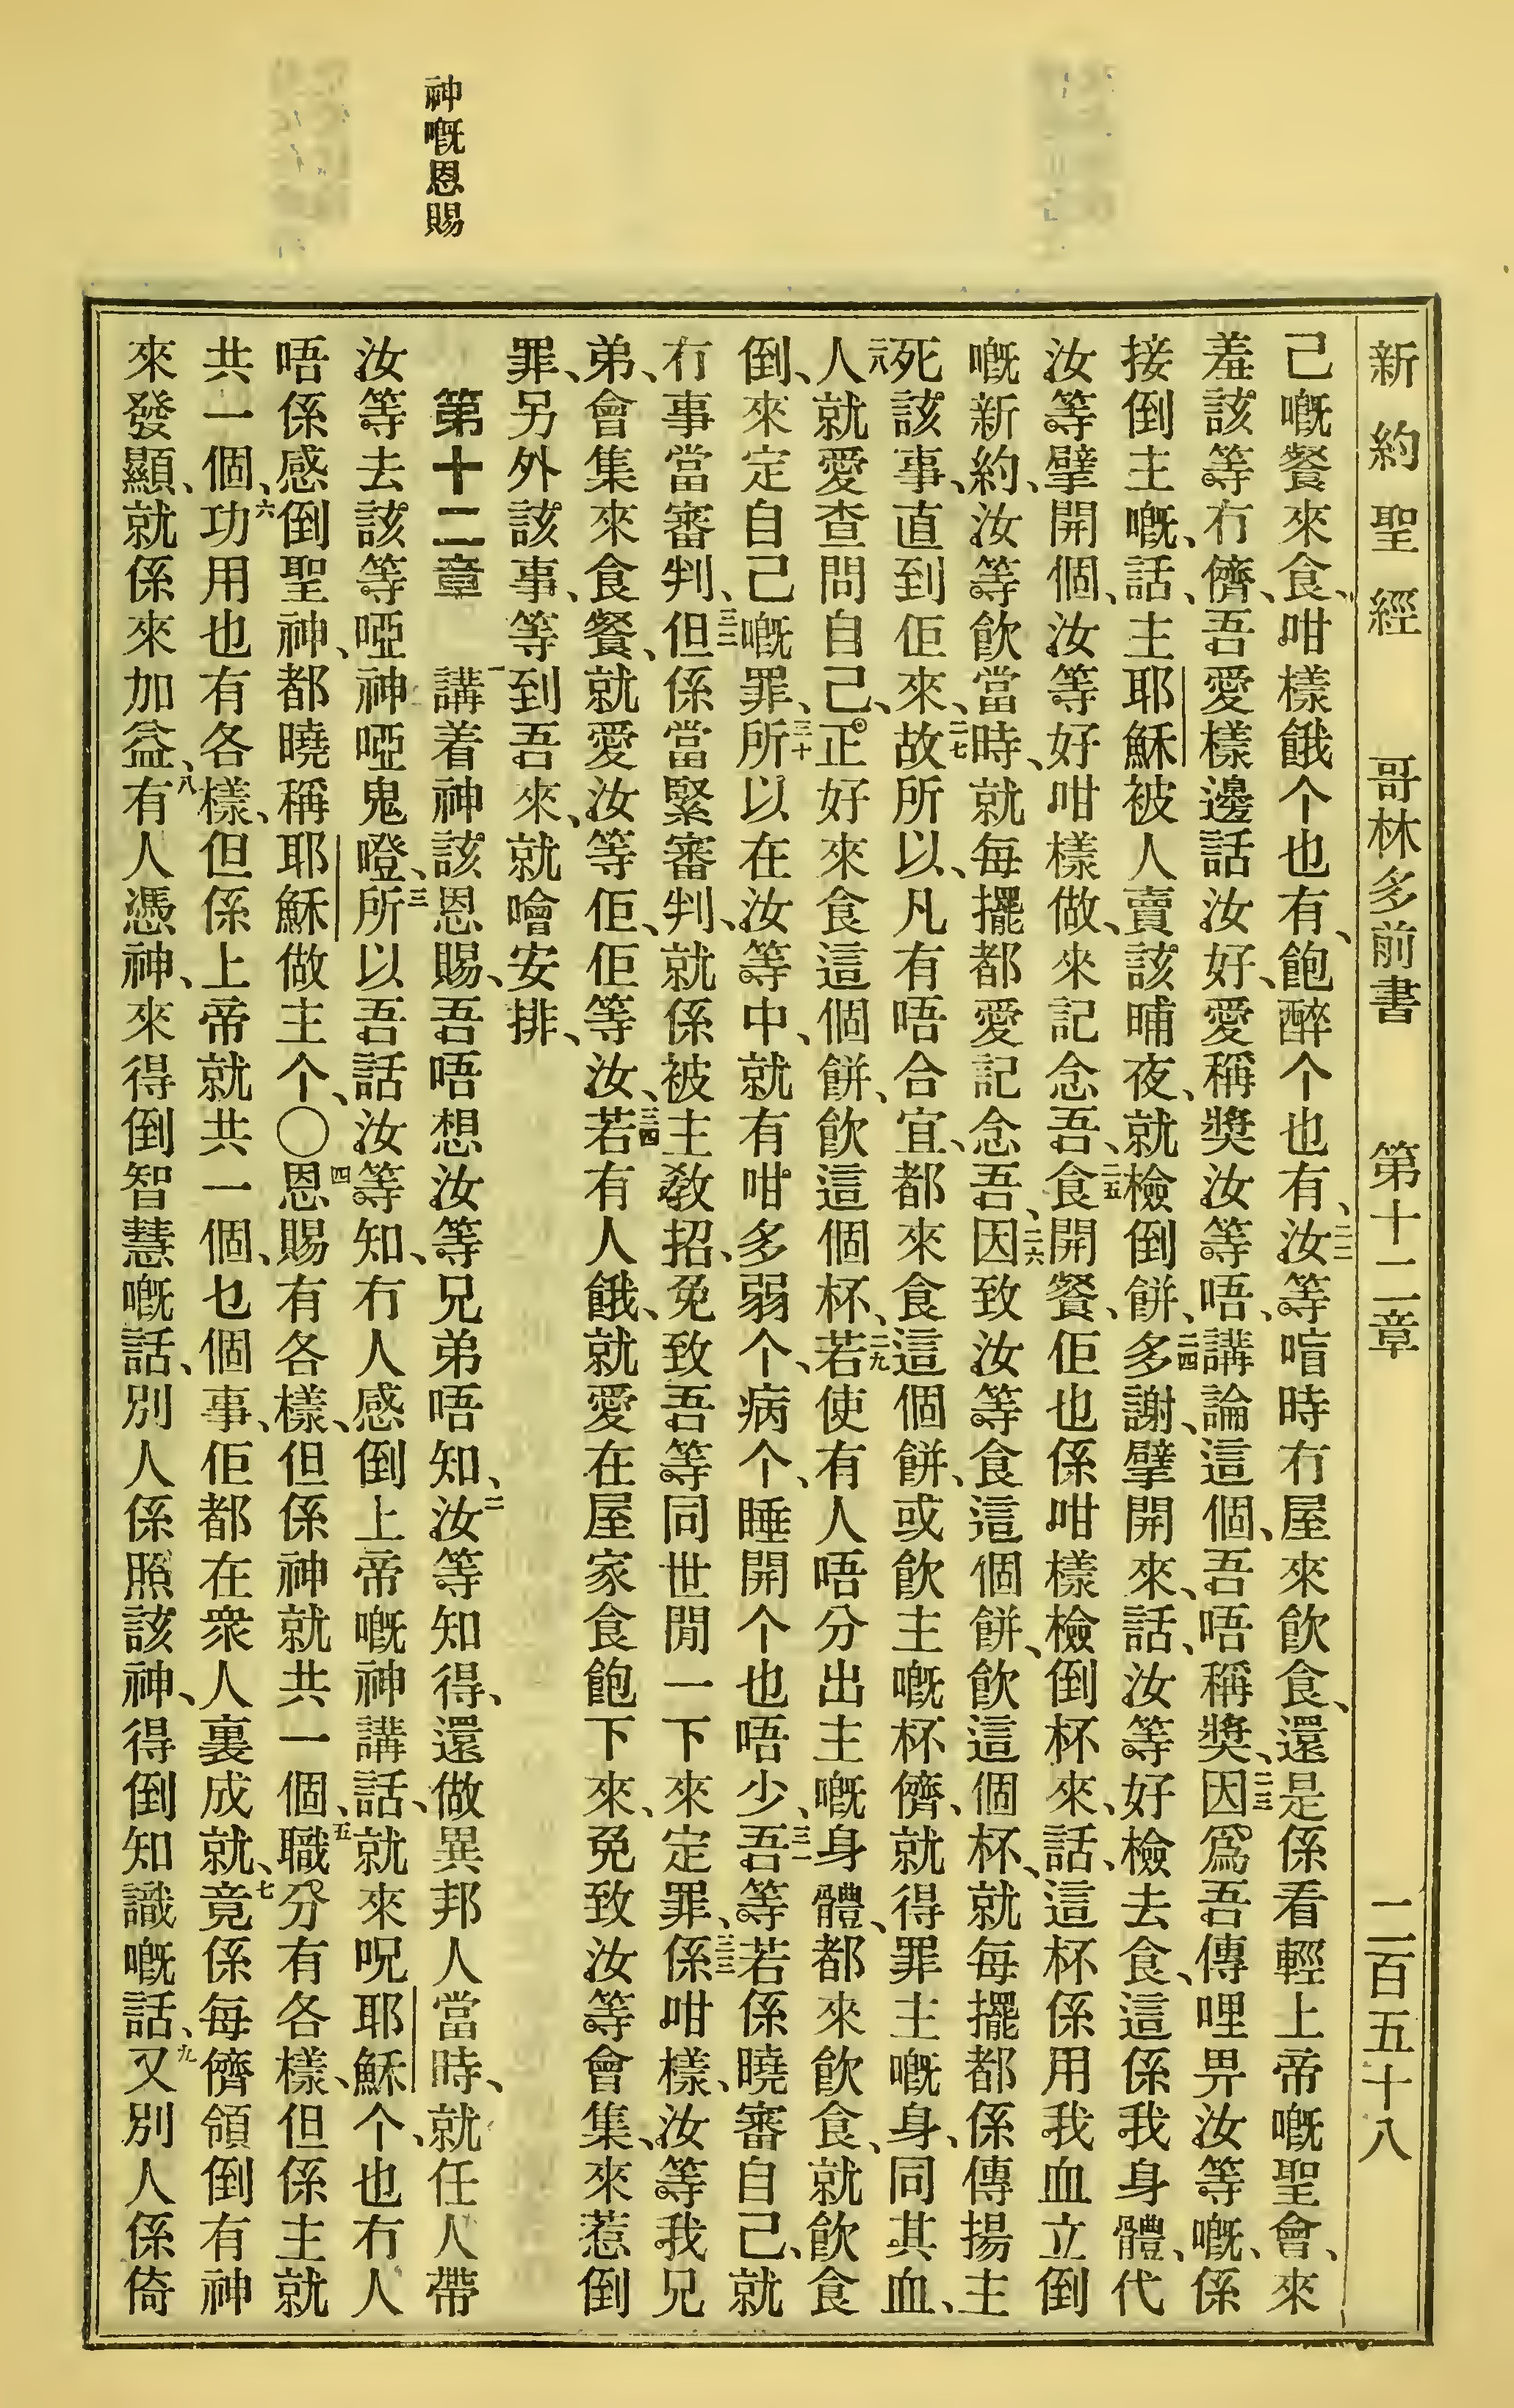 神嘅恩賜
新約聖經　哥林多前書　第十二章　二百五十八
己嘅餐來食、咁樣餓个也有、飽醉个也有、二二汝等喑時冇屋來飲食、還是係看輕上帝嘅聖會、來
羞該等冇儕、吾愛樣邊話汝好、愛稱獎汝等唔、講論這個、吾唔稱獎、二三因爲吾傳哩畀汝等嘅、係
接倒主嘅、話、主耶穌被人賣該晡夜、就檢倒餅、二四多謝、擘開來、話、汝等好檢去食、這係我身體、代
汝等擘開個、汝等好咁樣做、來記念吾、二五食開餐、佢也係咁樣檢倒杯來、話、這杯係用我血立倒
嘅新約、汝等飲當時、就每擺都愛記念吾、二六因致汝等食這個餅、飲這個杯、就每擺都係傳揚主
死該事、直到佢來、二七故所以、凡有唔合宜、都來食這個餅、或飲主嘅杯儕、就得罪主嘅身、同其血、
二八人就愛查問自己、正好來食這個餅、飲這個杯、二九若使有人唔分出主嘅身體、都來飲食、就飲食
倒、來定自己嘅罪、三十所以在汝等中、就有咁多弱个、病个、睡開个也唔少、三一吾等若係曉審自己、就
冇事當審判、三二但係當緊審判、就係被主教招、免致吾等同世間一下來定罪、三三係咁樣、汝等我兄
弟、會集來食餐、就愛汝等佢、佢等汝、三四若有人餓、就愛在屋家食飽下來、免致汝等會集、來惹倒
罪、另外該事、等到吾來、就噲安排、
第十二章　一講着神該恩賜、吾唔想汝等兄弟唔知、二汝等知得、還做異邦人當時、就任人帶
汝等去該等啞神啞鬼㘒、三所以吾話汝等知、冇人感倒上帝嘅神講話、就來呪耶穌个、也冇人
唔係感倒聖神、都曉稱耶穌做主个、〇四恩賜有各樣、但係神就共一個、五職分有各樣、但係主就
共一個、六功用也有各樣、但係上帝就共一個、乜個事、佢都在衆人裏成就、七竟係每儕領倒有神
來發顯、就係來加益、八有人憑神、來得倒智慧嘅話、別人係照該神、得倒知識嘅話、九又別人係倚